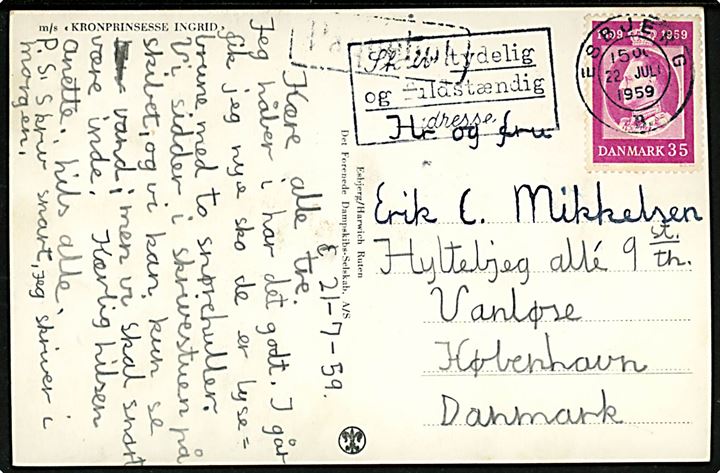 m/s «KRONPRINSESSE INGRID»
£ 21-7-59.
Kære alle tre.
Jeg håber i har det godt. I går
fik jeg nye sko de er lyse=
brune med to snørehuller.
Vi sidder i skrivestuen på
skibet, og vi kan kun se
vand, men vi skal snart
være inde.
Kærlig hilsen
Anette, hils alle.
P.S. Skriv snart, jeg skriver i
morgen.
Esbjerg/Harwich Ruten
Det Forenede Dampskibs-Selskab, A/S
Skriv tydelig
og fuldstændig
adresse
ESBJERG
15
22 JULI
1959
1909 1959
DANMARK 35
Hr og fru
Erik C. Mikkelsen
Hyltebjeg allé 9 st. th.
Vanløse
København
Danmark